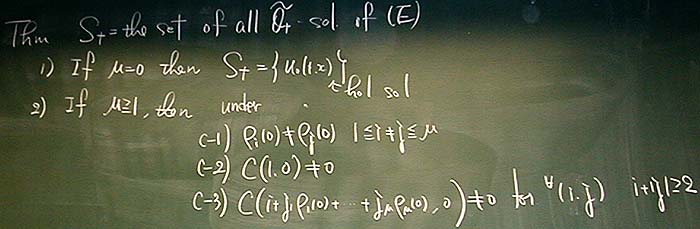 Thm S₊ = the set of all Õ₊-sol. of (E)
1) If μ=0 then S₊ = {u₀(t,x)} ← hol sol
2) If μ≥1, then under
C-1) ρᵢ(0)≠ρⱼ(0) 1≤i≠j≤μ
C-2) C(1,0)≠0
C-3) C(i+j₁ρ₁(0)+⋯+j_μρ_μ(0),0)≠0 for ∀(i,j) i+|j|≥2